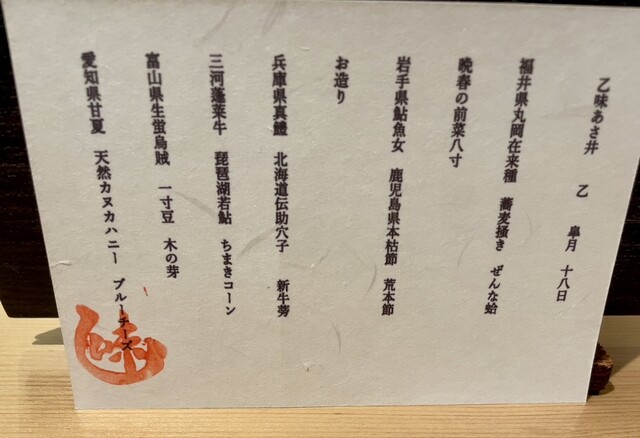 乙味あさ井　乙　皐月　十八日
福井県丸岡在来種　蕎麦掻き　ぜんな蛤
晩春の前菜八寸
岩手県鮎魚女　鹿児島県本枯節　荒本節
お造り
兵庫県真鱧　北海道伝助穴子　新牛蒡
三河蓬莱牛　琵琶湖若鮎　ちまきコーン
富山県生蛍烏賊　一寸豆　木の芽
愛知県甘夏　天然カヌカハニー　ブルーチーズ
味